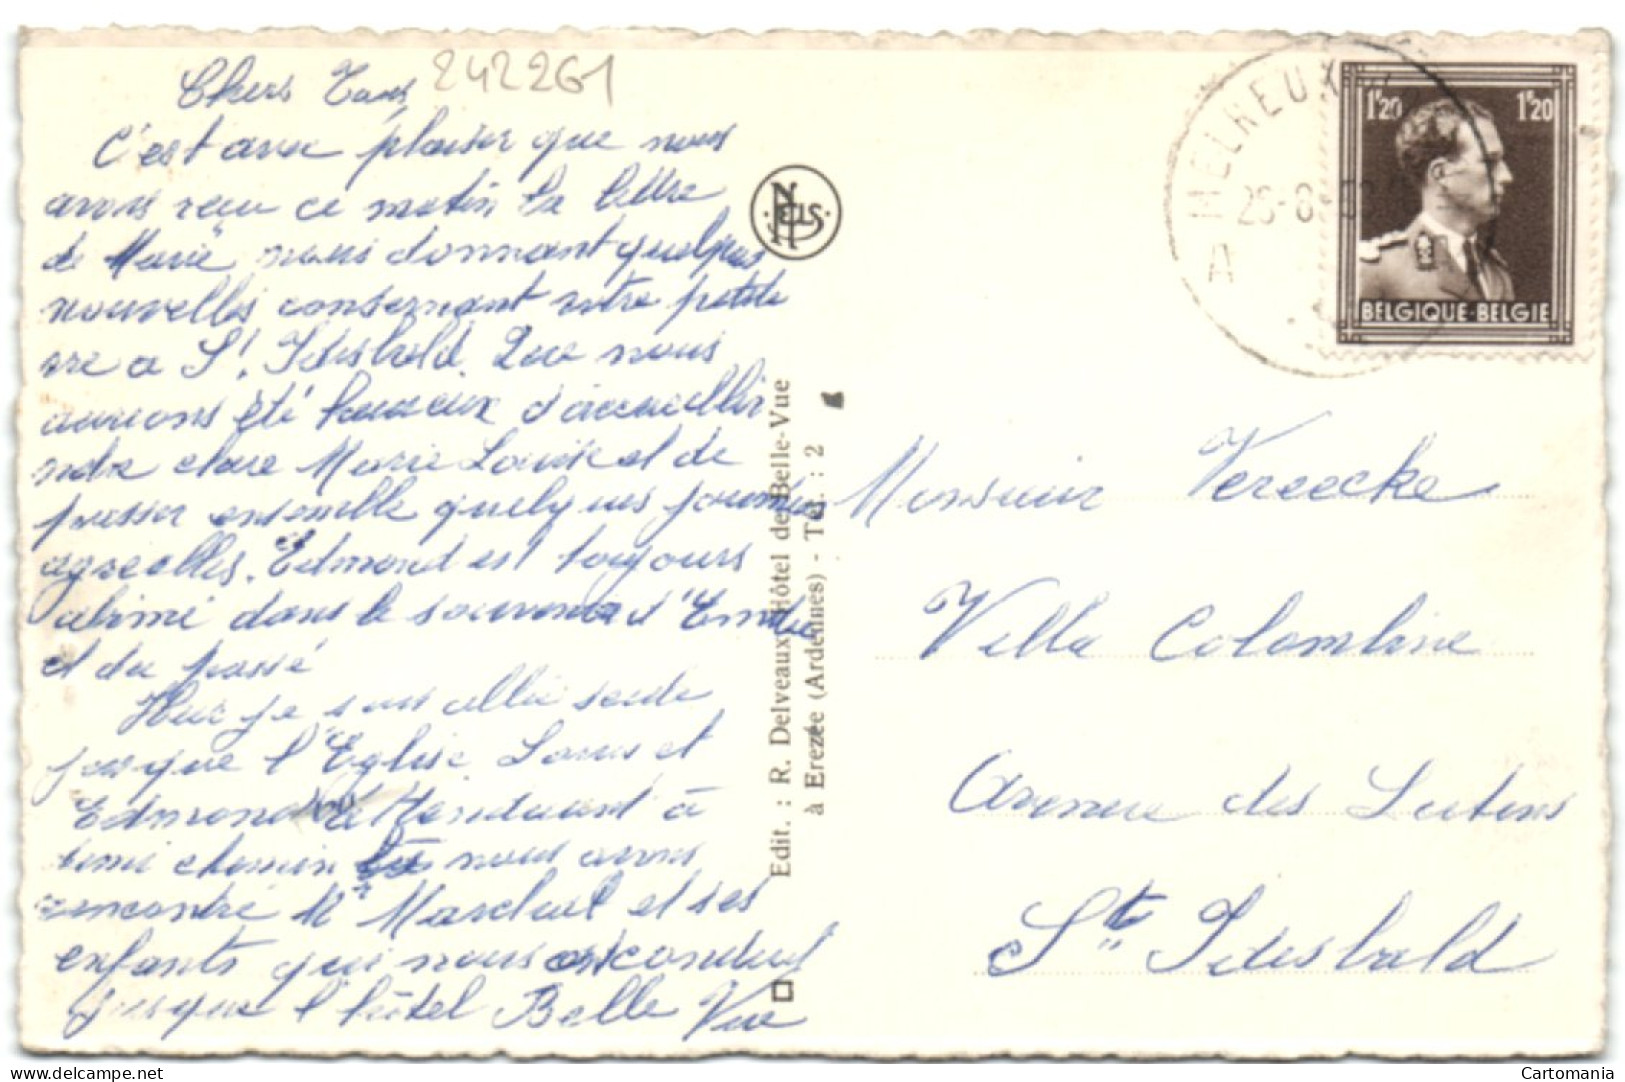 242261
Chers Tous
C'est avec plaisir que nous
avons reçu ce matin la lettre
de Marie nous donnant quelques
nouvelles consernant votre petite
vie a St Idesbald. Que nous
aurions été heureux d'accueillir
notre chère Marie Louise et de
passer ensemble quelques journées
agréables. Edmond est toujours
abimé dans le souvenir d'
et du passé
Hier je suis allée seule
jusque l'Eglise. Louis et
Edmond à
demi chemin nous avons
rencontré Mr et ses
enfants qui nous ont conduit
jusque l'hôtel Belle Vue
NELS
Edit. : R. Delveaux, Hôtel de Belle-Vue
à Erezée (Ardennes) - Tél. : 2
MELREUX
A
26-8-
1F20 1F20
BELGIQUE-BELGIE
Monsieur Vereecke
Villa Colombine
Avenue des Lutins
St Idesbald
Cartomania